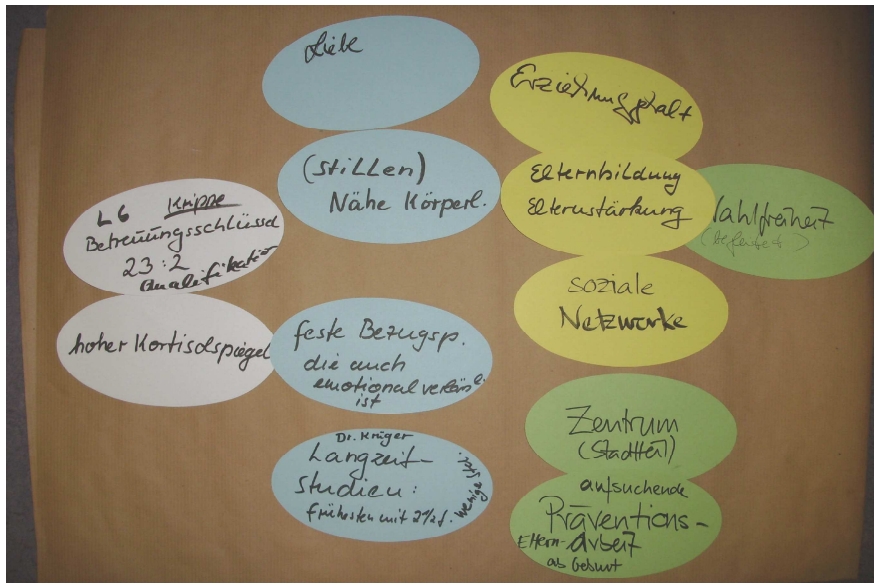 Liebe
(Stillen)
Nähe Körperl.
L6 Krippe
Betreuungsschlüssel
23:2
Qualifikation
hoher Kortisolspiegel
feste Bezugsp.
die auch
emotional verläsl.
ist
Dr. Krüger
Langzeit-
studien:
frühesten mit 2½ J.
wenige Std.
Erziehungsgehalt
Elternbildung
Elternstärkung
Wahlfreiheit
soziale
Netzwerke
Zentrum
(Stadtteil)
aufsuchende
Präventions-
Eltern-arbeit
ab Geburt